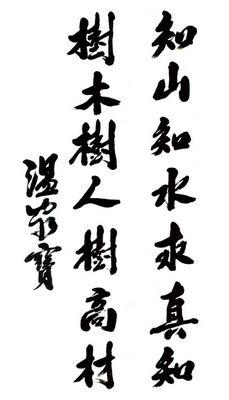 知山知水求真知
樹木樹人樹高材
温家寶